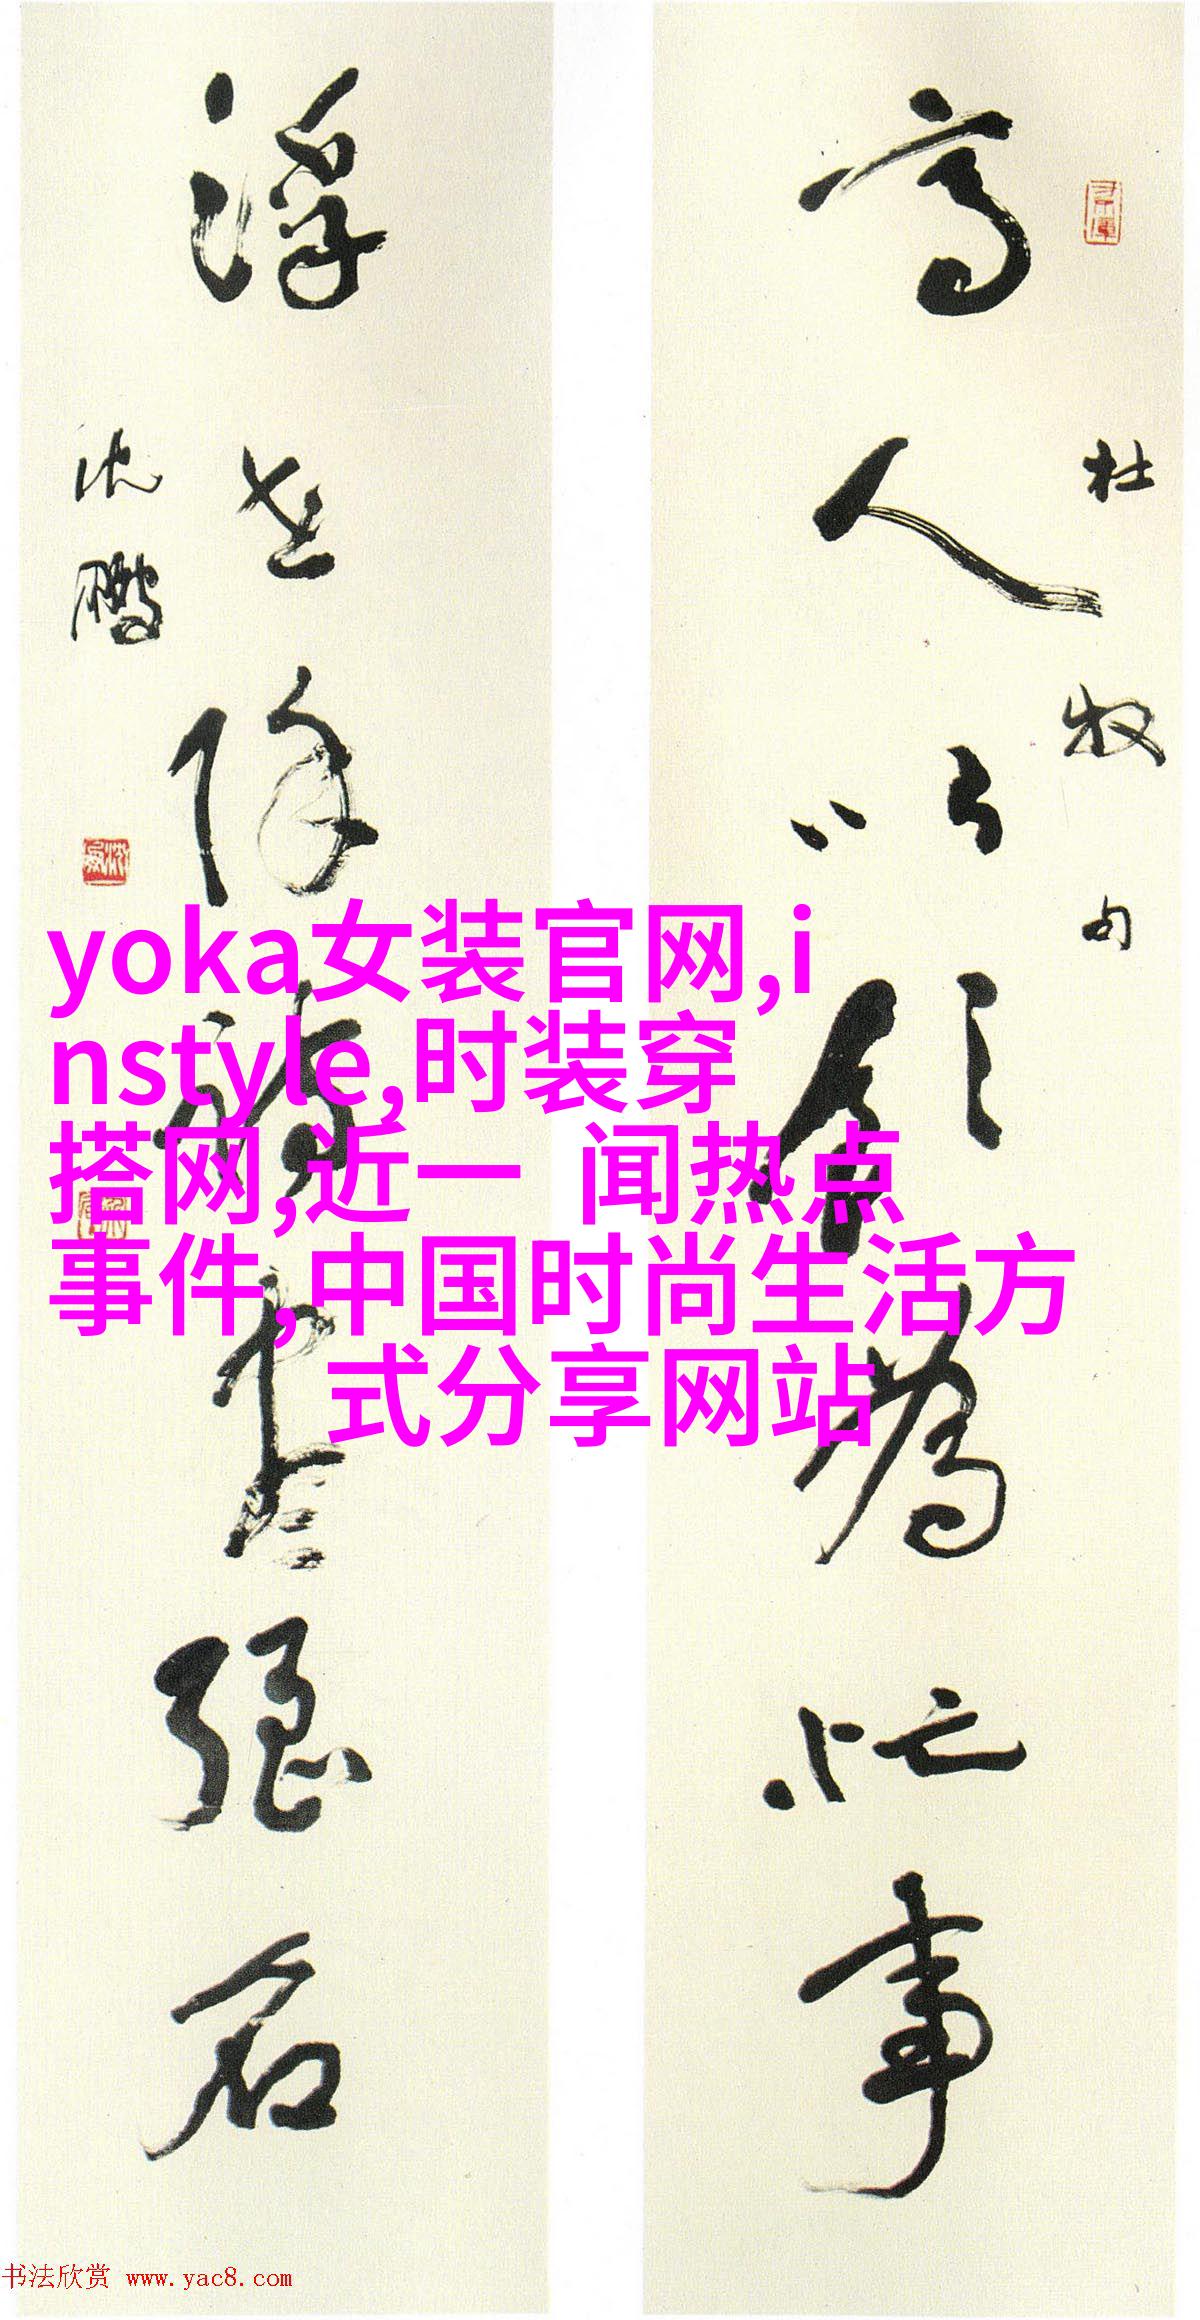 高人以飲為忙事
杜牧句
浮世除詩盡強名
沈鵬
yoka女装官网,i
nstyle,时装穿
搭网,近一 闻热点
事件,中国时尚生活方
式分享网站
书法欣赏 www.yac8.com